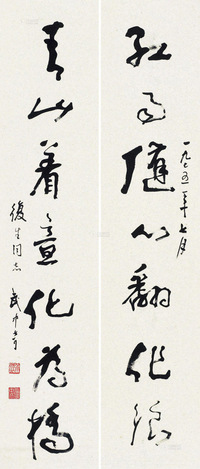 红雨随心翻作浪
一九七五年七月
青山着意化为桥
復生同志
武中奇